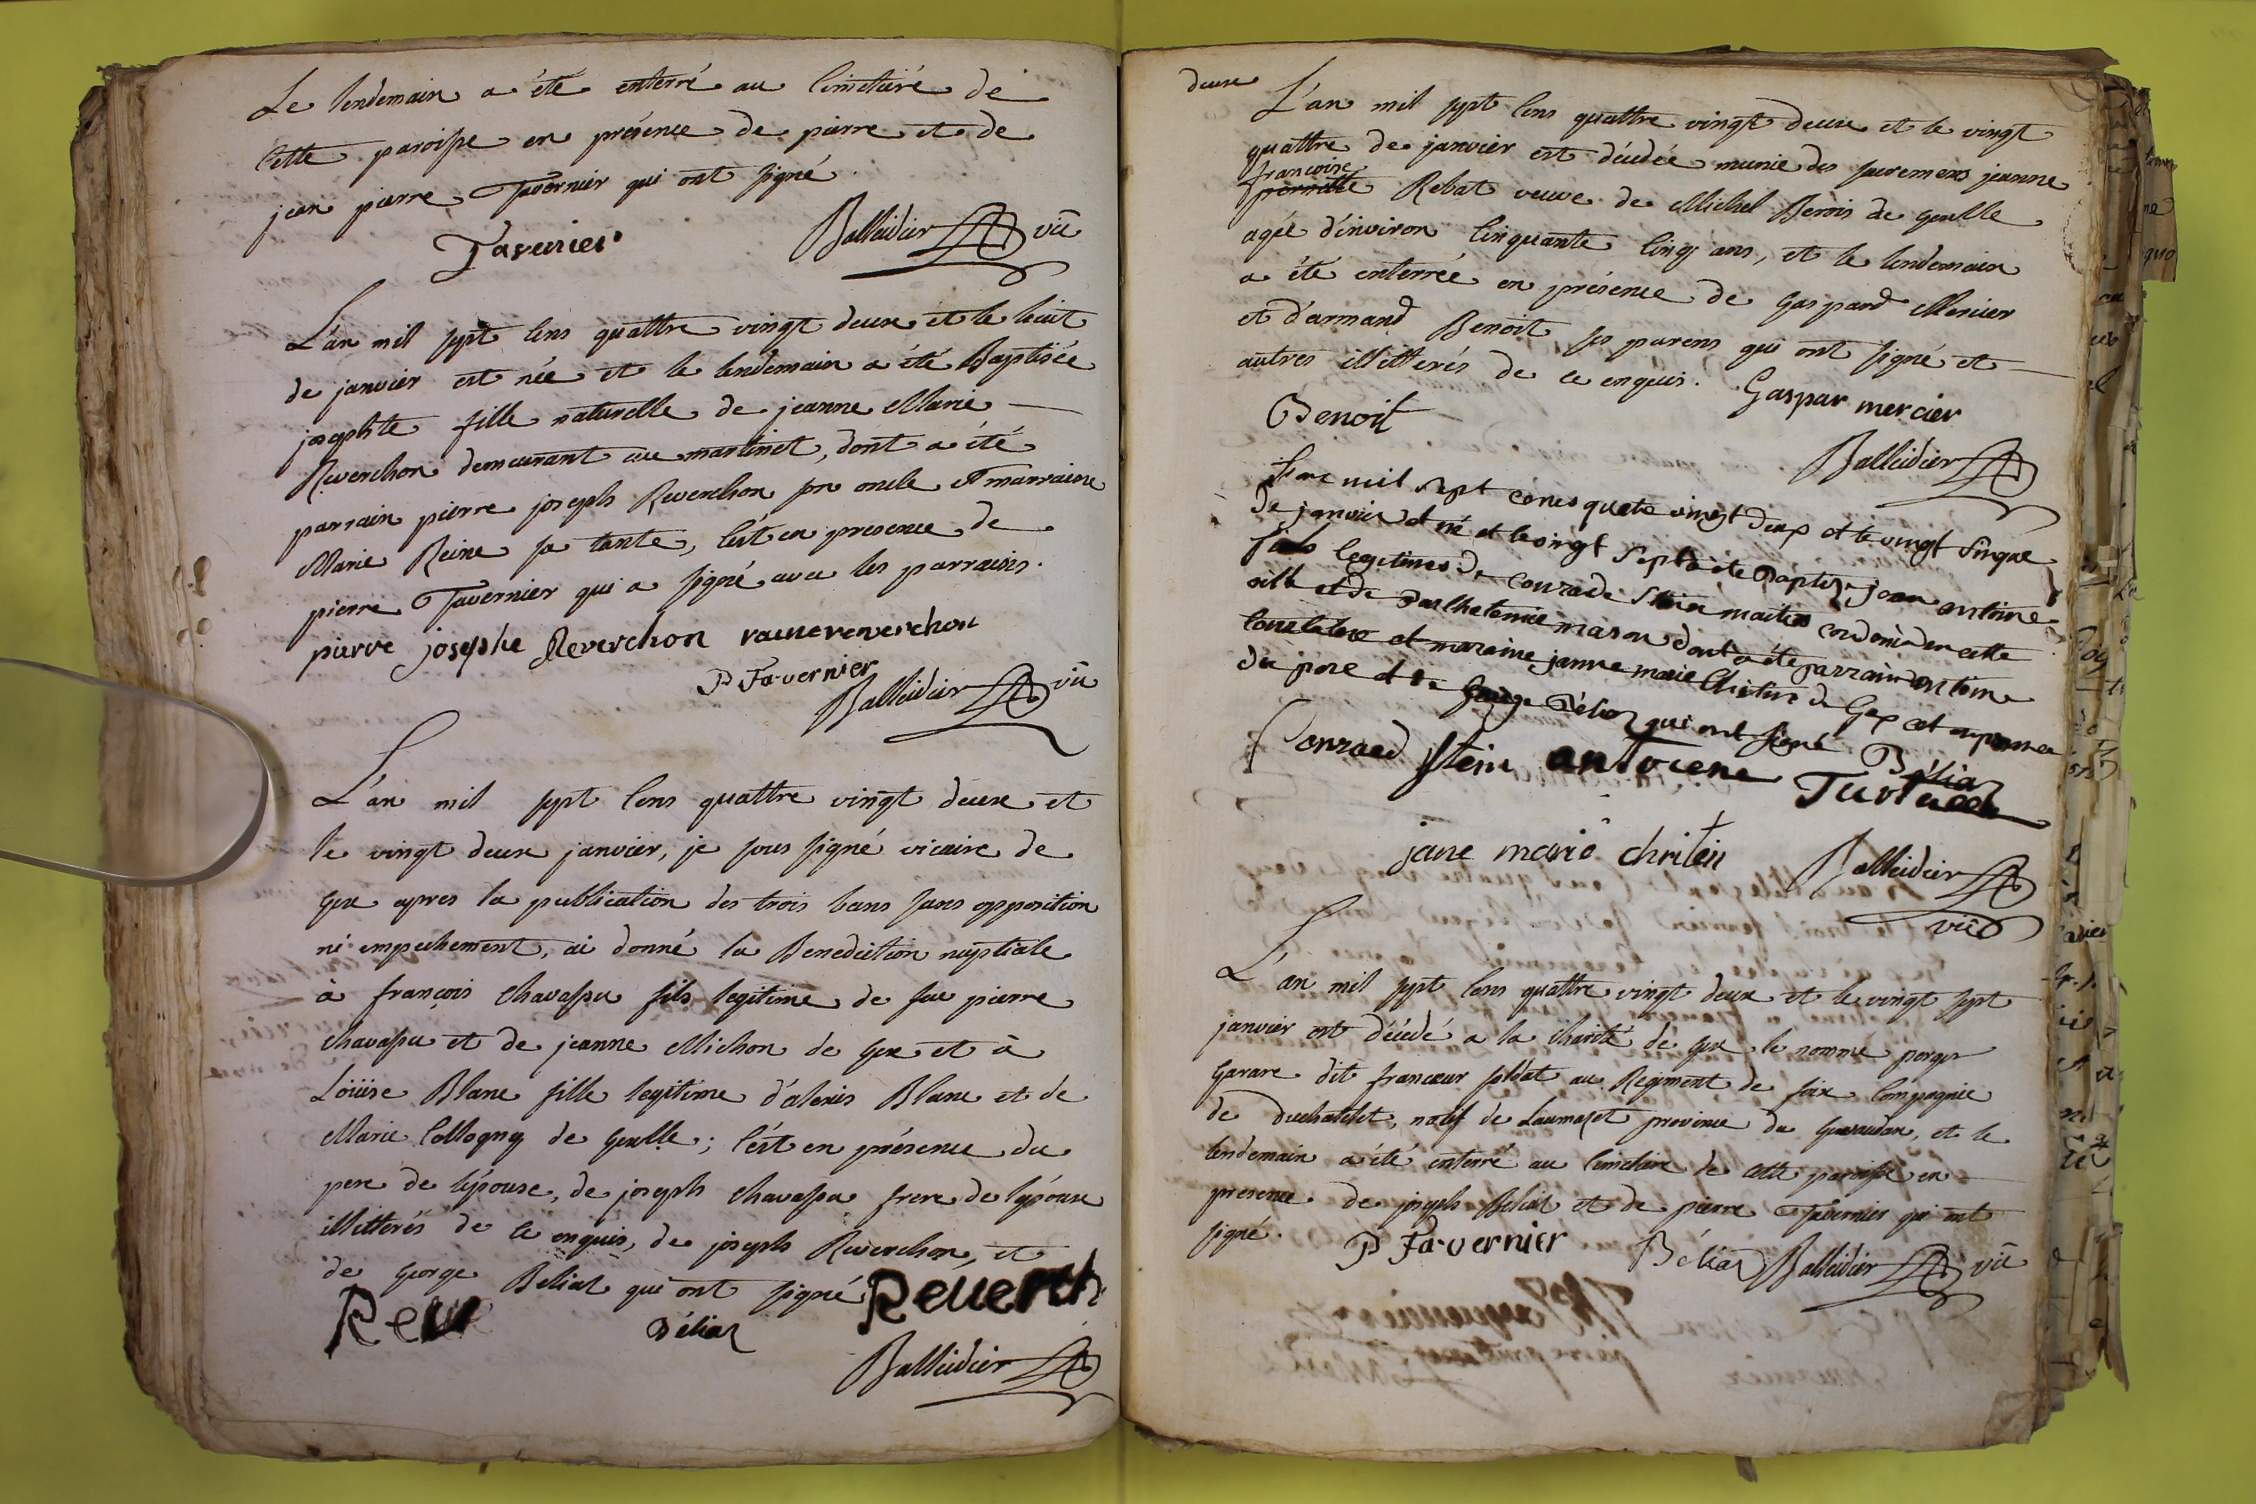 Le lendemain a été enterré au Cimetiére de
Cette paroisse en présence de pierre et de
jean pierre Tavernier qui ont signé.
Tavernier
Balleidier vic
L'an mil sept Cens quattre vingt deux et le huit
de janvier est née et le lendemain a été Baptisée
josephte fille naturelle de jeanne Marie
Reverchon demeurant au martinet, dont a été
parrain pierre joseph Reverchon son oncle et marraine
Marie Reine sa tante, C'ést en presence de
pierre Tavernier qui a signé avec les parrains.
pierre josephe Reverchon raine reverchon
P Tavernier
Balleidier vic
L'an mil sept Cens quattre vingt deux et
le vingt deux janvier, je sous signé vicaire de
Gex apres la publication des trois bans sans opposition
ni empechement, ai donné la Benediction nuptiale
à françois Chavassu fils legitime de feu pierre
Chavassu et de jeanne Michon de Gex et à
Loüise Blanc fille legitime d'alexis Blanc et de
Marie Collogny de Gexlle; C'ést en présence du
pere de l'épouse, de joseph Chavassu frere de l'époux
illitterés de ce enquis, de joseph Reverchon, et
de George Beliat qui ont signé Reverch
Reve Béliaz
Balleidier
deux
L'an mil sept Cens quattre vingt deux et le vingt
quattre de janvier est décédée munie des sacremens jeanne
françoise
Rebat veuve de Michel Benois de Gexlle
agée d'environ Cinquante Cinq ans, et le lendemain
a été enterrée en présence de Gaspard Mercier
et d'armand Benoit ses parens qui ont signé et
autres illitterés de ce enquis. Gaspar mercier
Benoit
Balleidier
L'an mil sept cents quatre vingt deux et le vingt sinque
de janvier et né et le vingt sept a été Baptize jean antoine
fils legitime de Conrade Stein maitre cordonier en cette
ville et de Barthelemie mason dont a été parrain antoine
et maraine janne marie Christin de Gex et en presence
du pere et de George Béliaz qui ont signé
Conraed Stein antoiene Béliaz
jane marie chritein Balleidier
vic
L'an mil sept Cens quattre vingt deux et le vingt sept
janvier est décédé a la Charité de Gex le nommé
Garare dit francœur soldat au Régiment de foix Compagnie
de Duchatelet, natif de province du Gevaudan, et le
lendemain a été enterré au Cimetiere de cette paroisse en
presence de joseph Beliat et de pierre Tavernier qui ont
signé. P Tavernier Béliaz Balleidier vic